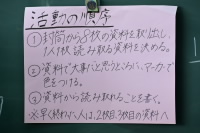 活動の順序
①封筒から8枚の資料を取り出し、
1人1枚読み取る資料を決める。
②資料で大事だと思うところに、マーカーで
色をつける。
③資料から読み取れることを書く。
※早く終わった人は、2枚目、3枚目の資料へ